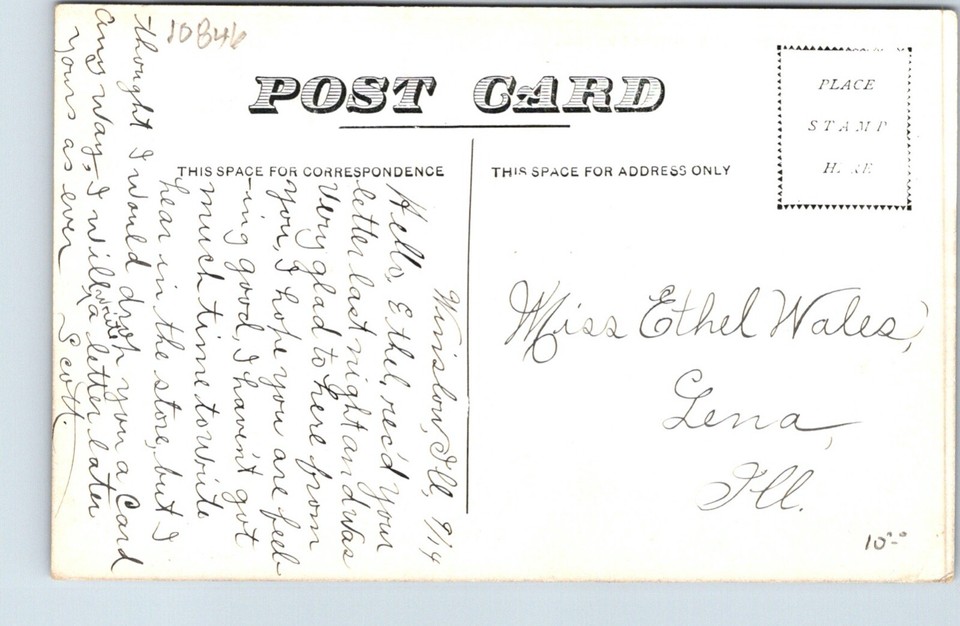 10846
POST CARD
THIS SPACE FOR CORRESPONDENCE
THIS SPACE FOR ADDRESS ONLY
PLACE
STAMP
HERE
Winslow, Ill, 9/14
Hello, Ethel, rec'd your
letter last night and was
very glad to here from
you, I hope you are feel-
-ing good, I haven't got
much time to write
hear in the store, but I
thought I would drop you a Card
any way, I will write a letter later
yours as ever Scott.
Miss Ethel Wales,
Lena,
Ill.
10-0